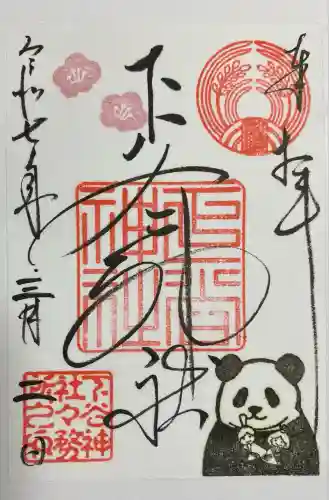 奉拝
下谷神社
令和七年三月二日
下谷神社
下谷神
社々務
所之印